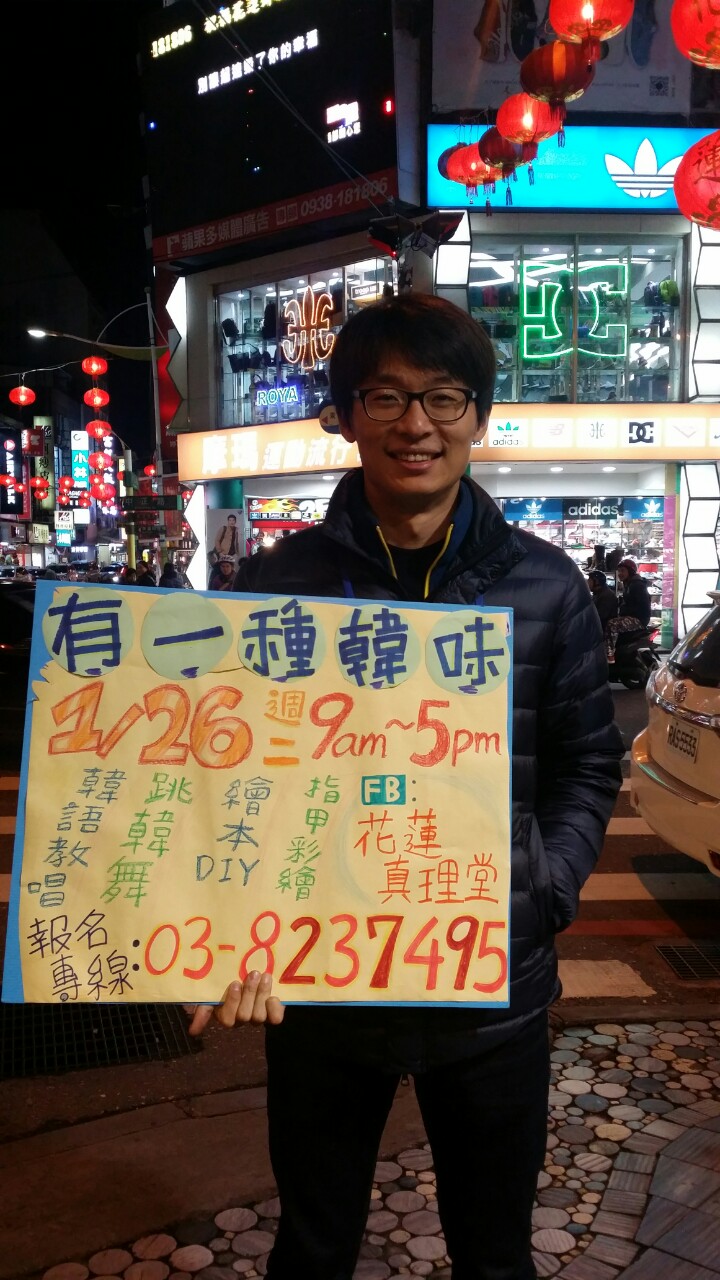 181806
別讓謊言毀了你的幸福
蘋果多媒體廣告 0938-181806
ROYA
運動流行
adidas
DC
adidas
小林
有一種韓味
1/26 週二 9am~5pm
韓語教唱
跳韓舞
繪本DIY
指甲彩繪
FB:
花蓮
真理堂
報名專線:03-8237495